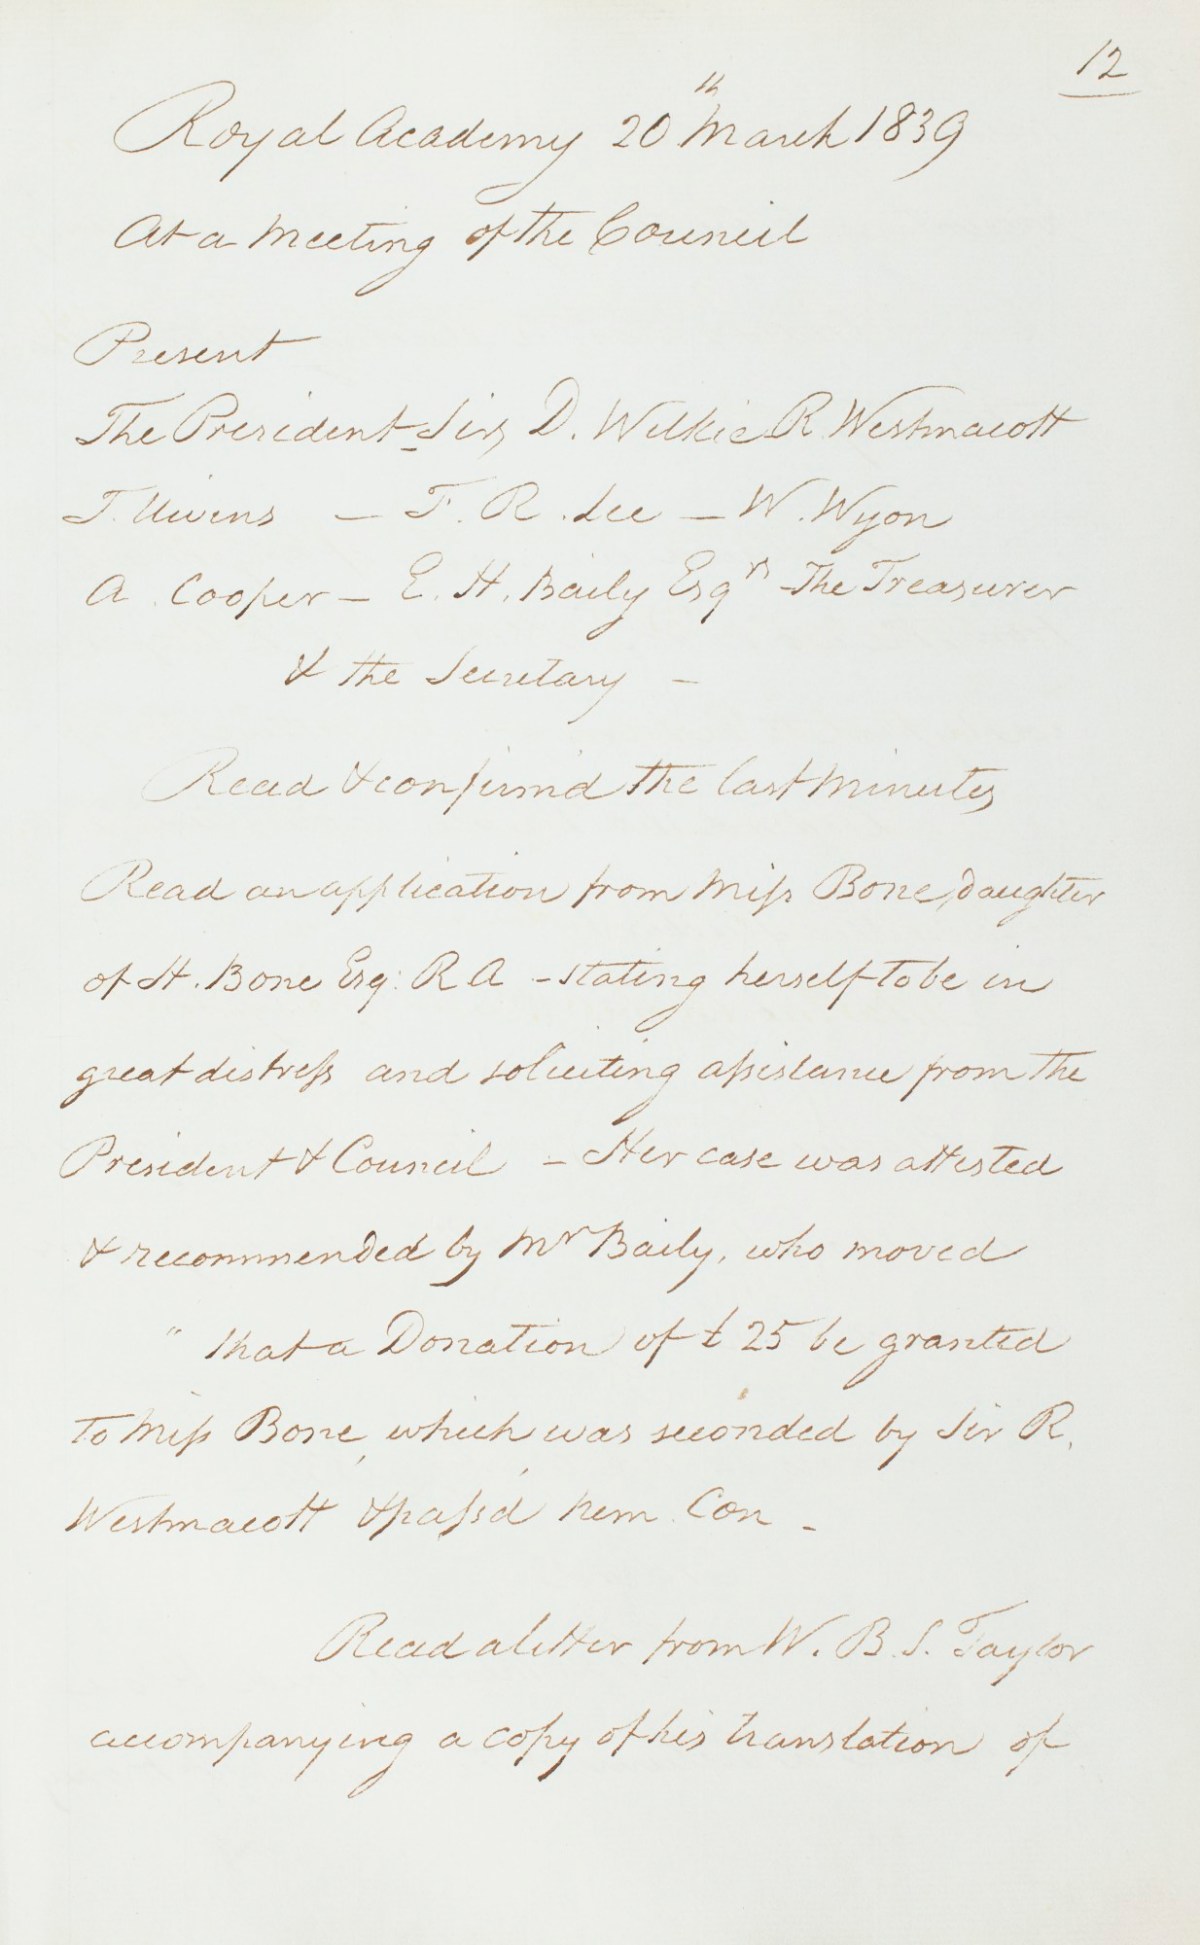 12
Royal Academy 20th March 1839
At a Meeting of the Council
Present
The President - Sirs D. Wilkie R Westmacott
T. Uwins — F. R. Lee — W. Wyon
A. Cooper — E. H. Baily Esqrs - The Treasurer
& the Secretary —
Read & confirm'd the last Minutes
Read an application from Miss Bone, Daughter
of H. Bone Esq: R A - stating herself to be in
great distress and soliciting assistance from the
President & Council — Her case was attested
& recommended by Mr Baily, who moved
" that a Donation of £25 be granted
to Miss Bone, which was seconded by Sir R.
Westmacott & pass'd Nem. Con -
Read a letter from W. B. S. Taylor
accompanying a copy of his translation of